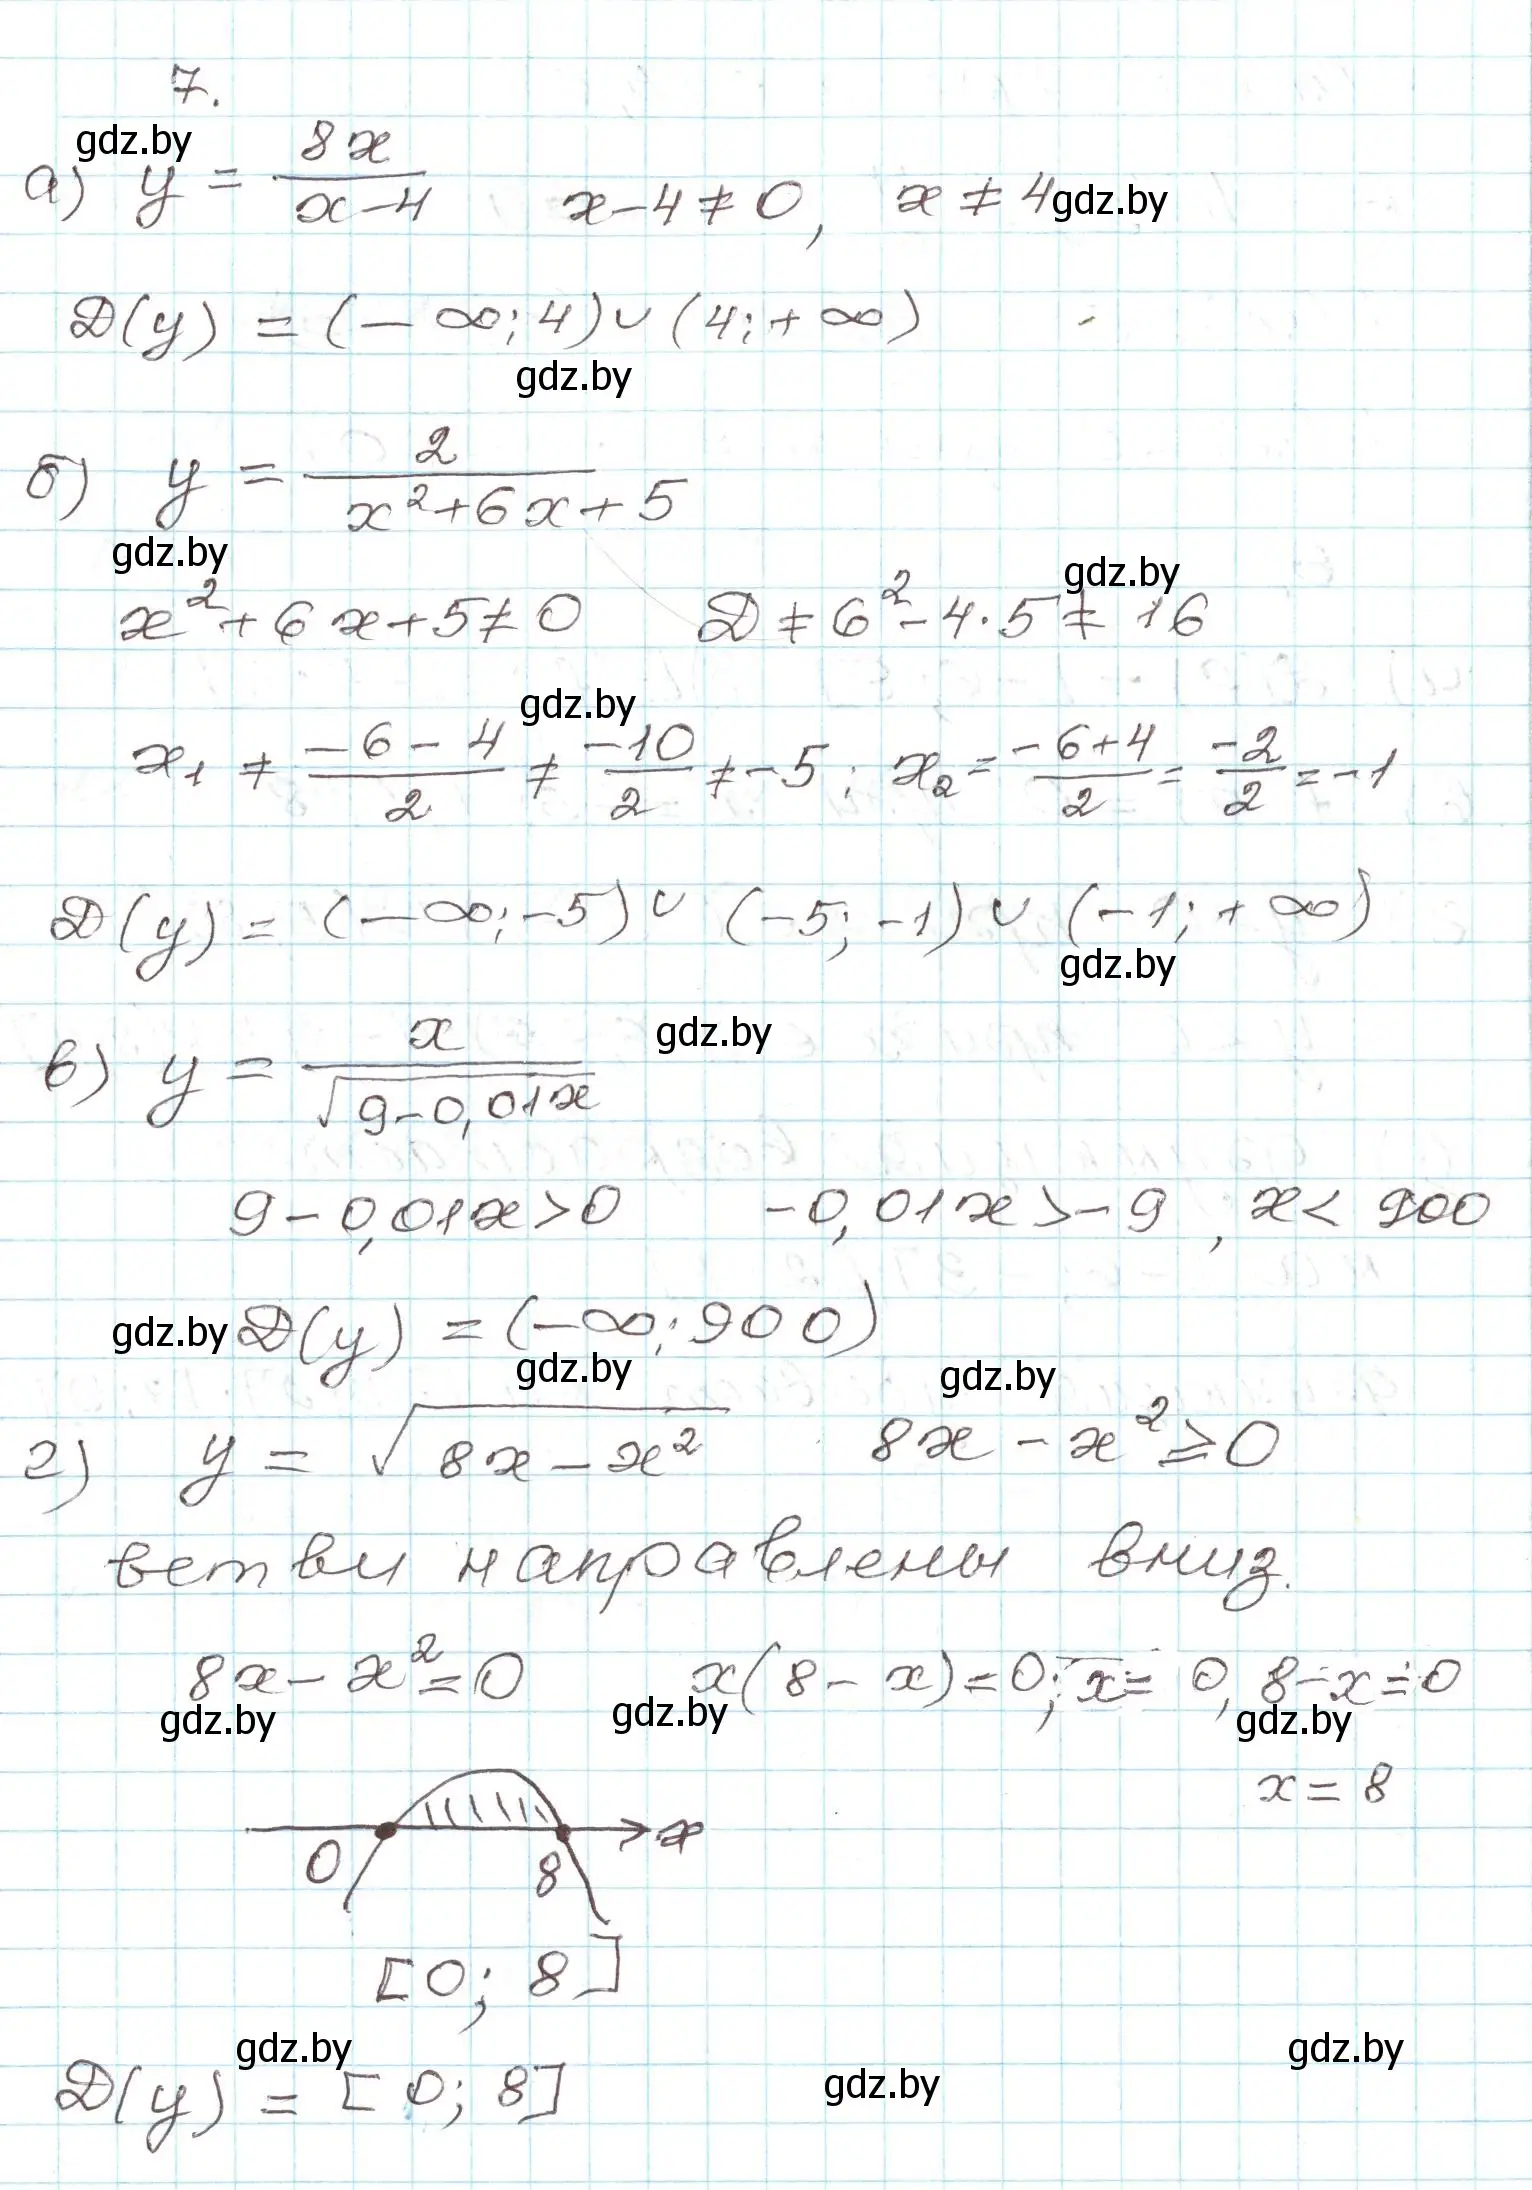 7.
gdz.by
а) y = 8x / (x - 4)   x - 4 ≠ 0, x ≠ 4 gdz.by
D(y) = (- ∞; 4) ∪ (4; + ∞)
gdz.by
б) y = 2 / (x² + 6x + 5)
gdz.by gdz.by
x² + 6x + 5 ≠ 0   D ≠ 6² - 4 · 5 ≠ 16
gdz.by
x₁ ≠ (-6 - 4)/2 ≠ -10/2 ≠ -5; x₂ = (-6 + 4)/2 = -2/2 = -1
D(y) = (- ∞; -5) ∪ (-5; -1) ∪ (-1; + ∞)
gdz.by
в) y = x / √(9 - 0,01x) gdz.by
9 - 0,01x > 0   -0,01x > -9, x < 900
gdz.by D(y) = (-∞; 900)
gdz.by gdz.by
г) y = √(8x - x²)   8x - x² ≥ 0
ветви направлены вниз.
8x - x² = 0   x(8 - x) = 0; x = 0, 8 - x = 0
gdz.by gdz.by gdz.by
x = 8
x
0 8
[0; 8]
gdz.by gdz.by
D(y) = [0; 8] gdz.by